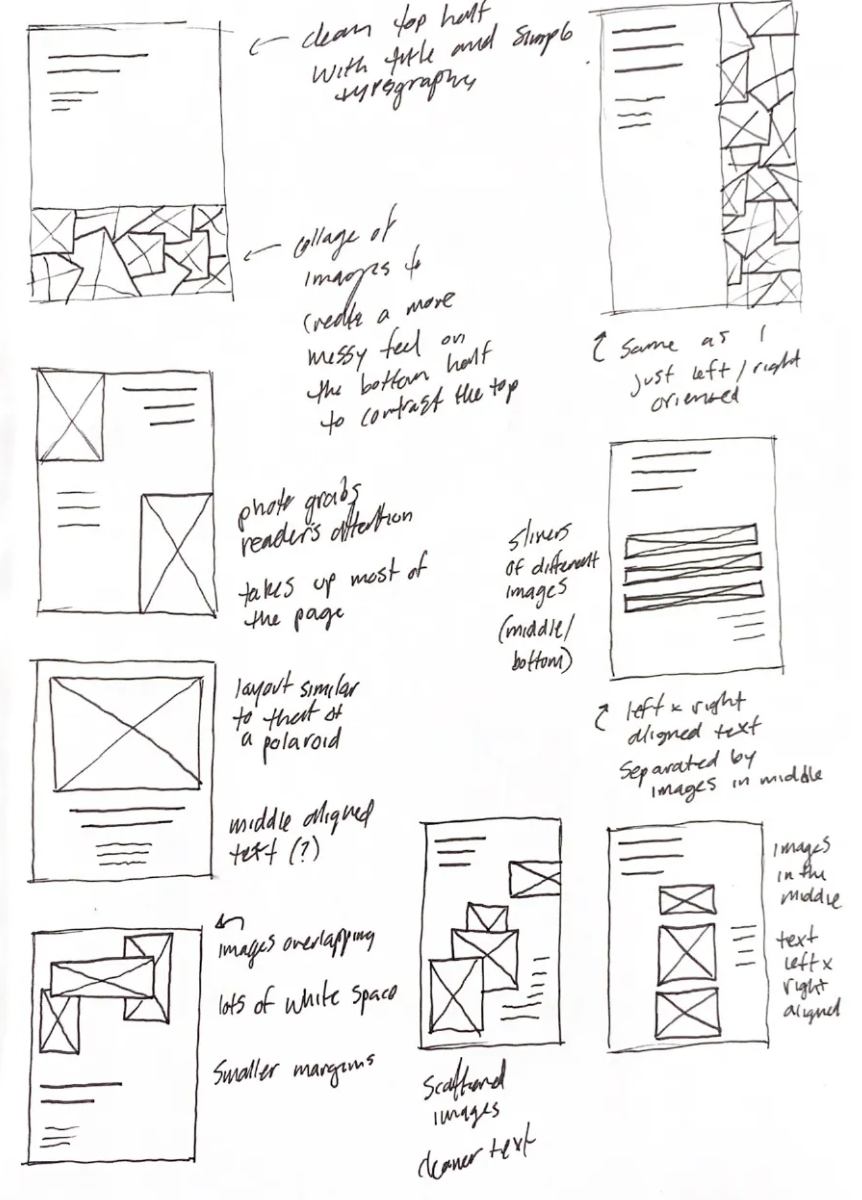 clean top half
with title and simple
typography
collage of
images to
create a more
messy feel on
the bottom half
to contrast the top
same as 1
just left/right
oriented
photo grabs
reader's attention
takes up most of
the page
slivers
of different
images
(middle/
bottom)
left x right
aligned text
separated by
images in middle
layout similar
to that of
a polaroid
middle aligned
text (?)
images overlapping
lots of white space
smaller margins
scattered
images
cleaner text
images
in the
middle
text
left x
right
aligned